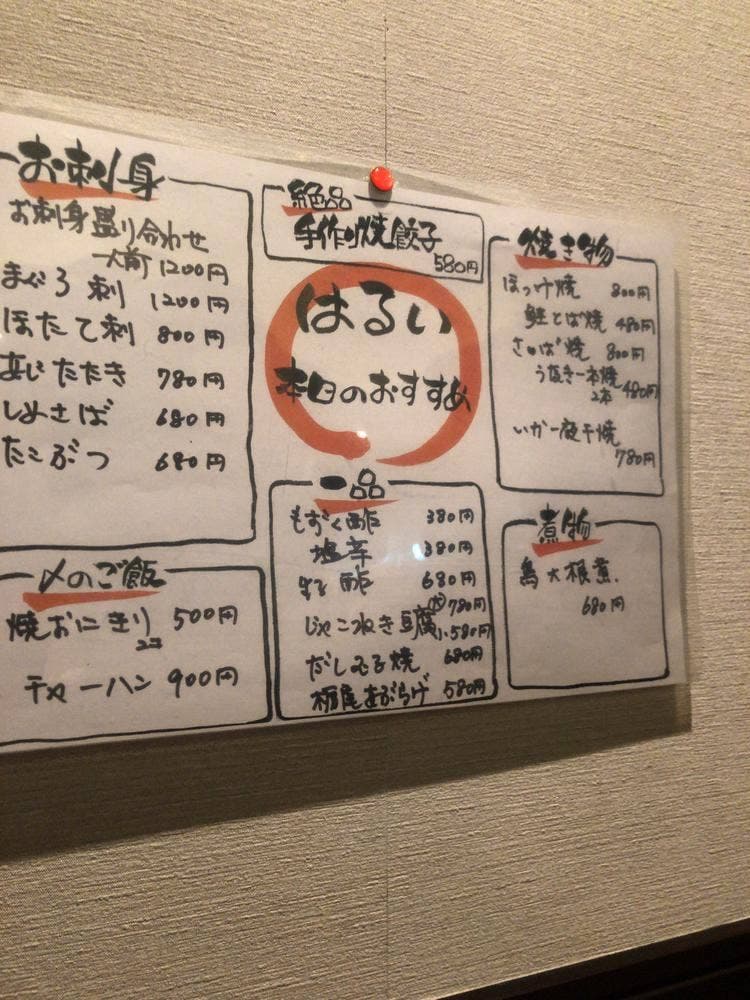 お刺身
お刺身盛り合わせ
一人前 1200円
まぐろ刺 1200円
ほたて刺 800円
あじたたき 780円
しめさば 680円
たこぶつ 680円
絶品
手作り焼餃子
580円
はるい
本日のおすすめ
焼き物
ほっけ焼 800円
鮭とば焼 480円
さば焼 800円
うなぎ一本焼
2本 480円
いか一夜干焼
780円
〆のご飯
焼おにぎり 500円
2コ
チャーハン 900円
一品
もずく酢 380円
塩辛 380円
酢 680円
じゃこねぎ豆腐 大780円
小580円
だし玉子焼 680円
栃尾あぶらげ 580円
煮物
鳥大根煮
680円